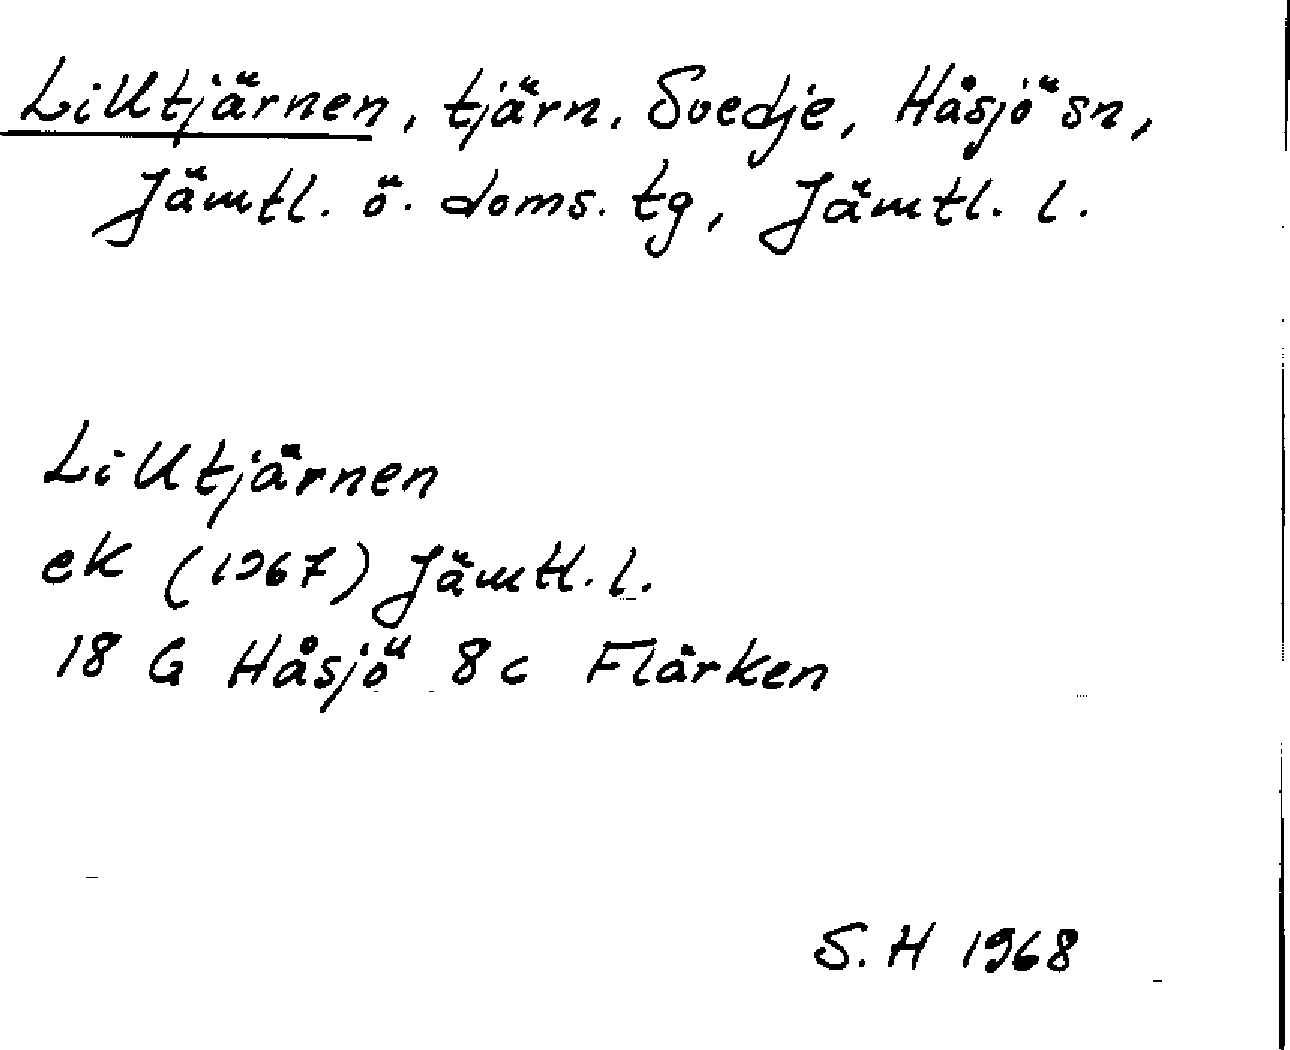 Lilltjärnen, tjärn. Svedje, Håsjö sn,
Jämtl. ö. doms. tg, Jämtl. l.
Lilltjärnen
ek (1967) Jämtl. l.
18 G Håsjö 8c Flärken
S. H 1968